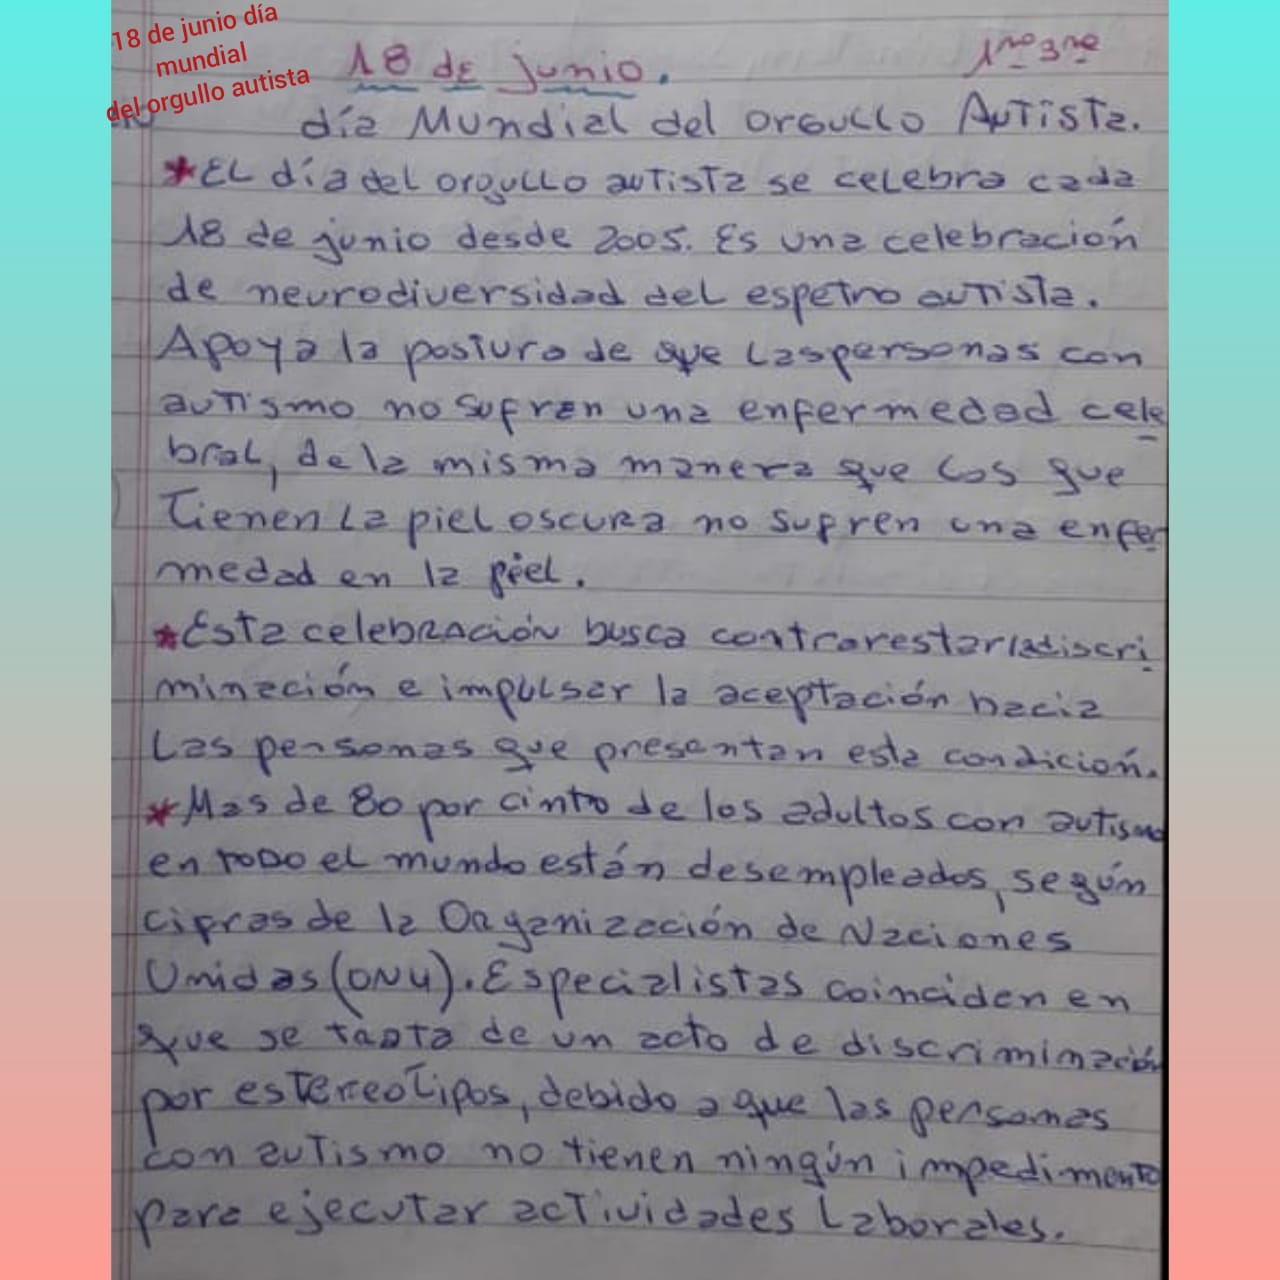 18 de junio día
mundial
del orgullo autista
18 de junio.
1ro 3ra
día Mundial del orgullo Autista.
*El día del orgullo autista se celebra cada
18 de junio desde 2005. Es una celebración
de neurodiversidad del espetro autista.
Apoya la postura de que las personas con
autismo no sufren una enfermedad cele
bral, de la misma manera que los que
Tienen la piel oscura no sufren una enfer
medad en la piel.
*Esta celebración busca contrarestar la discri
minación e impulsar la aceptación hacia
Las personas que presentan esta condición.
*Mas de 80 por cinto de los adultos con autismo
en todo el mundo están desempleados, según
cifras de la Organización de Naciones
Unidas (ONU). Especialistas coinciden en
que se tasta de un acto de discriminación
por estereotipos, debido a que las personas
con autismo no tienen ningún impedimento
para ejecutar actividades laborales.